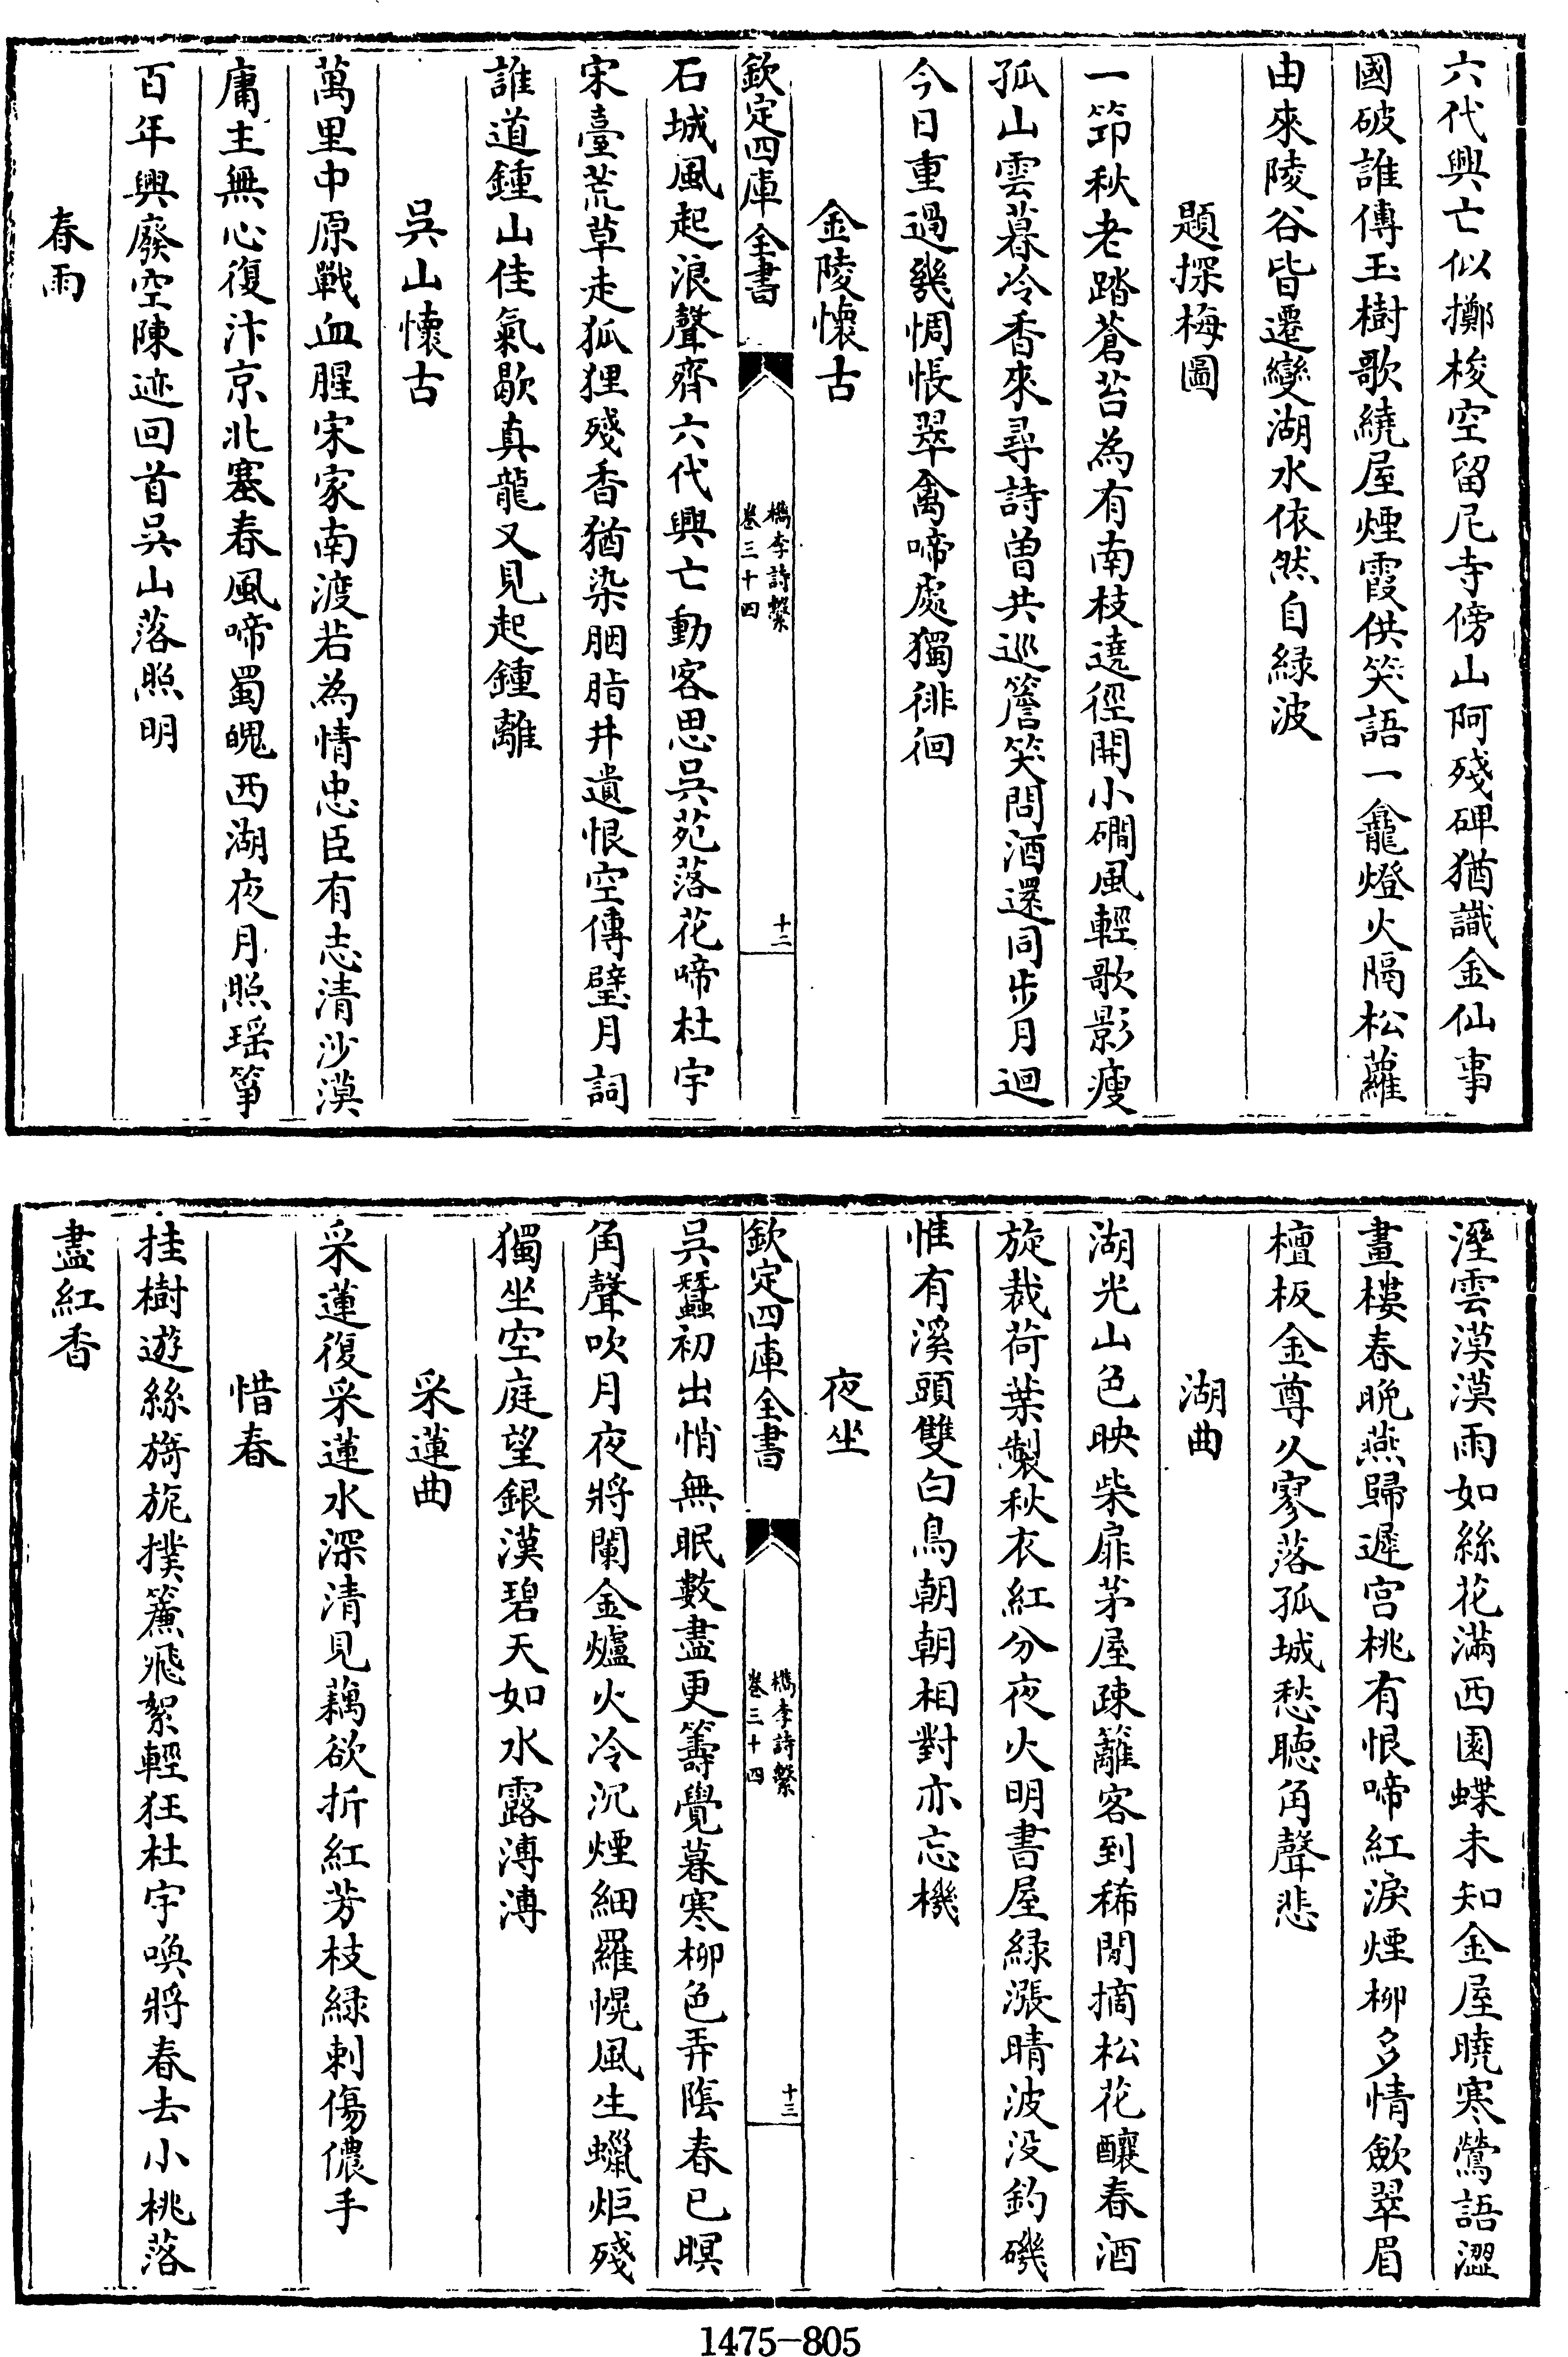 六代興亡似擲梭空留尼寺傍山阿殘碑猶識金仙事
國破誰傳玉樹歌繞屋煙霞供笑語一龕燈火隔松蘿
由來陵谷皆遷變湖水依然自緑波
題探梅圖
一筇秋老踏蒼苔為有南枝遶徑開小磵風輕歌影瘦
孤山雲暮冷香來尋詩曽共巡簷笑問酒還同步月迴
今日重過幾惆悵翠禽啼處獨徘徊
金陵懷古
欽定四庫全書
檇李詩繫
卷三十四
十二
石城風起浪聲齊六代興亡動客思吳苑落花啼杜宇
宋臺荒草走狐狸殘香猶染胭脂井遺恨空傳璧月詞
誰道鍾山佳氣歇真龍又見起鍾離
吳山懷古
萬里中原戰血腥宋家南渡若為情忠臣有志清沙漠
庸主無心復汴京北塞春風啼蜀魄西湖夜月照瑶箏
百年興廢空陳迹回首吳山落照明
春雨
溼雲漠漠雨如絲花滿西園蝶未知金屋曉寒鶯語澀
畫樓春晚燕歸遲宫桃有恨啼紅淚煙柳多情歛翠眉
檀板金尊久寥落孤城愁聴角聲悲
湖曲
湖光山色映柴扉茅屋疎籬客到稀閒摘松花釀春酒
旋裁荷葉製秋衣紅分夜火明書屋緑漲晴波没釣磯
惟有溪頭雙白鳥朝朝相對亦忘機
夜坐
欽定四庫全書
檇李詩繫
卷三十四
十三
吳蠶初出悄無眠數盡更籌覺暮寒柳色弄陰春已暝
角聲吹月夜將闌金爐火冷沉煙細羅幌風生蠟炬殘
獨坐空庭望銀漢碧天如水露漙漙
采蓮曲
采蓮復采蓮水深清見藕欲折紅芳枝緑刺傷儂手
惜春
挂樹遊絲旖旎撲簾飛絮輕狂杜宇喚將春去小桃落
盡紅香
1475-805